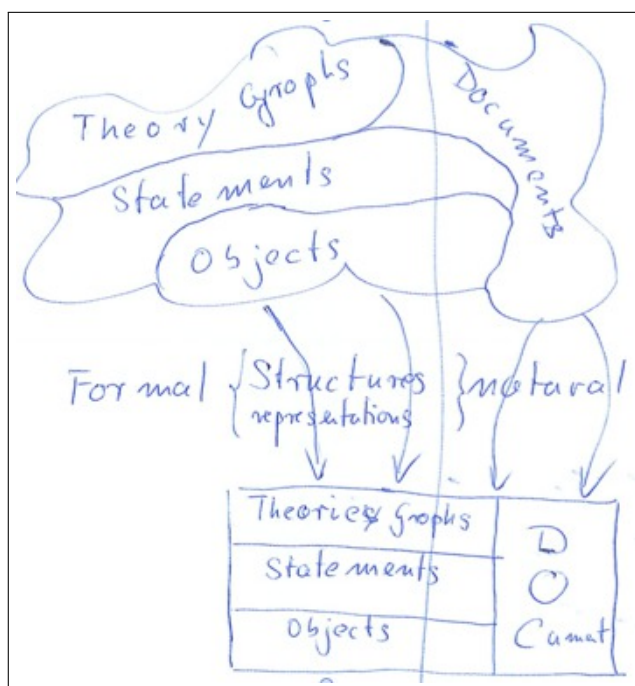 Theory Graphs
Documents
Statements
Objects
Formal { Structures representations } natural
Theories Graphs
Statements
Objects
D
O
Cumat